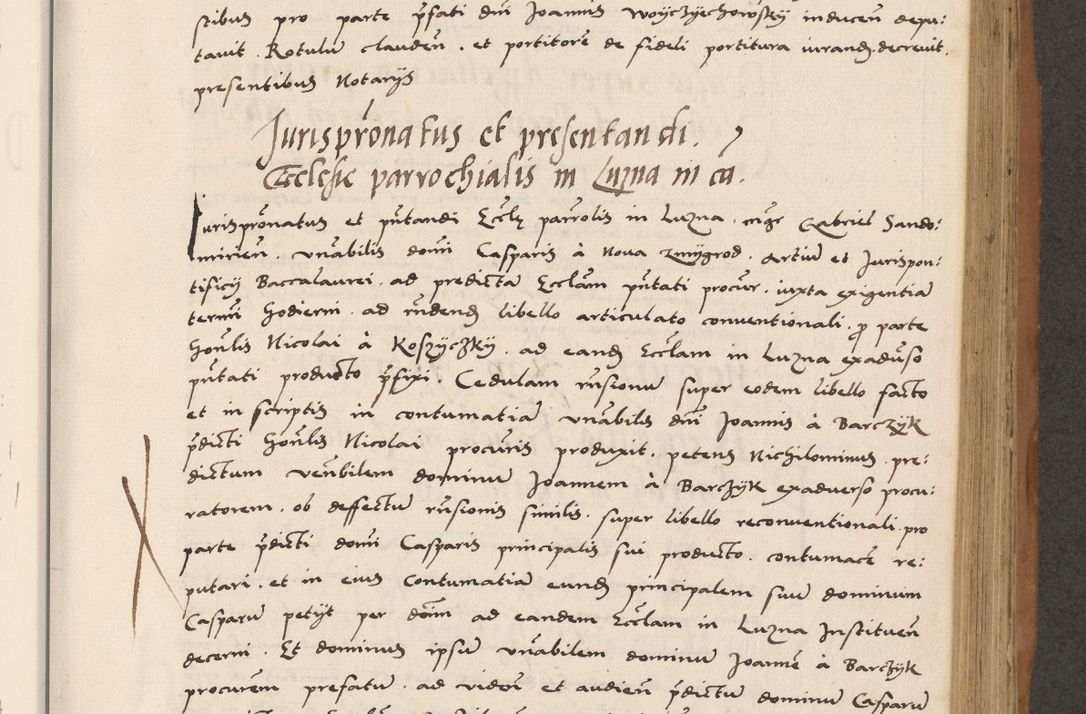 stibus pro parte p̄fati dn̄i Joannis Woyczyechowsky inducen̄ depu:
tauit . Rotulū clauden̄ . et portitorē de fideli portitura iurand. decreuit.
presentibus Notarijs
Jurisprōnatus et presentandi.
Ecclesie parrochialis in Luzna in cā.
Jurisprōnatus et pn̄tandi Eccłę parrōlis in Luzna . mgr Gabriel Sando:
mirien̄ . vn̄abilis domī Casparis à Noua Zmygrod . Artiū et Jurispon:
tificij Baccalaurei . ad predictā Eccłam pn̄tati procur̄ . iuxta exigentiā
termī hodierni . ad rn̄dend libello articulato conuentionali . p parte
hon̄lis Nicolai à Koszyczky . ad eand Eccłam in Luzna exadūso
pn̄tati producto p̄fixi . Cedulam rn̄sionū super eodem libello facto
et in scriptis in contumatiā vn̄abilis dn̄i Joannis à Barczyk
p̄dicti hon̄lis Nicolai procuris produxit . petens Nichilominus . pre:
dictum ven̄bilem dominū Joannem à Barczyk exaduerso procu:
ratorem . ob deffectū rn̄sionis similis . super libello reconuentionali . pro
parte p̄dicti domī Casparis principalis sui producto . contumacē re:
putari . et in eius Contumatiā eund principalem suū dominum
Casparū petijt per dōim ad eandem Eccłam in Luzna Instituen̄
decerni . Et dominus ipsū vn̄abilem dominū Joannē à Barczyk
procurēm prefatū . ad viden̄ et audien̄ p̄dictū dominū Casparū